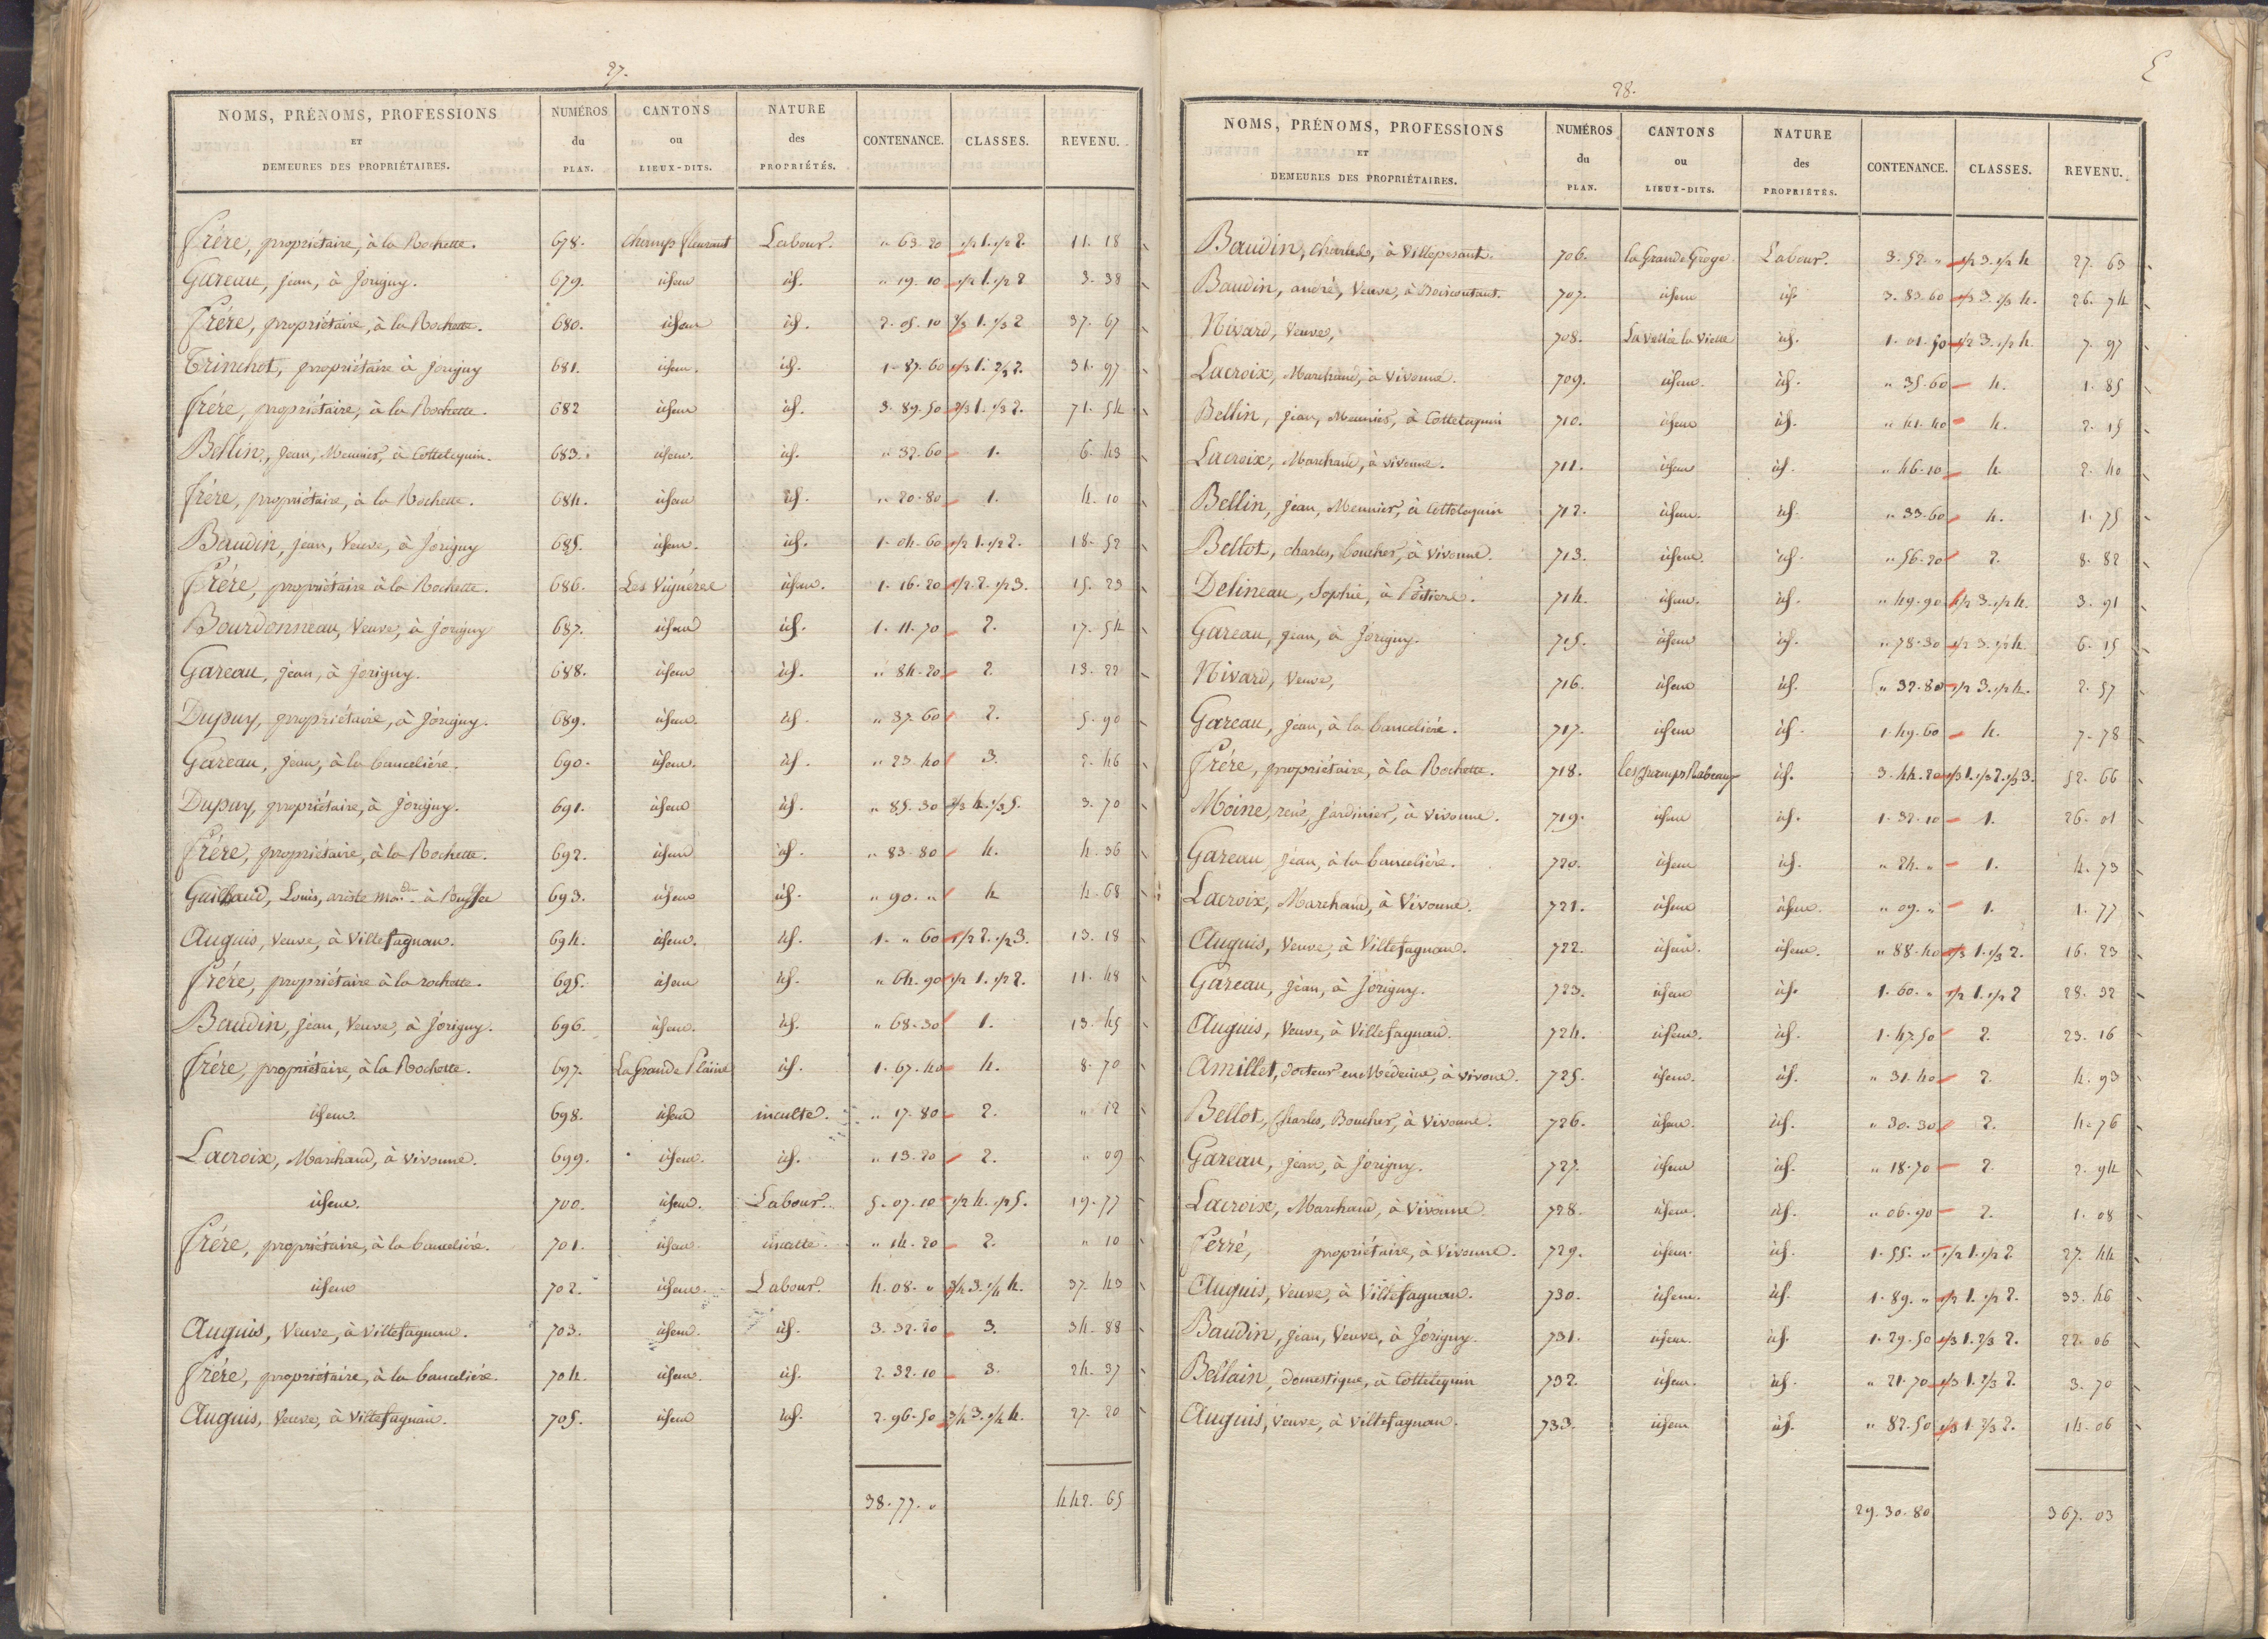 27.
NOMS, PRÉNOMS, PROFESSIONS ET DEMEURES DES PROPRIÉTAIRES. NUMÉROS du PLAN. CANTONS ou LIEUX-DITS. NATURE des PROPRIÉTÉS. CONTENANCE. CLASSES. REVENU.
Frére, propriétaire, à la Rochette. 678. champs fleurant Labour. " 63. 20 1/2 1. 1/2 2. 11. 18
Gareau, jean, à Jorigny. 679. idem id. " 19. 10 1/2 1. 1/2 2 3. 38
Frére, propriétaire, à la Rochette. 680. idem id. 2. 05. 10 2/3 1. 1/3 2 37. 67
Trinchot, propriétaire à Jorigny 681. idem. id. 1. 87. 60 1/3 1. 2/3 2. 31. 97
frére, propriétaire, à la Rochette. 682 idem id. 3. 89. 50 2/3 1. 1/3 2. 71. 54
Bellin, Jean, Meunier, à Cottelequin. 683. idem. id. " 32. 60 1. 6. 43
frére, propriétaire, à la Rochette. 684. idem id. " 20. 80 1. 4. 10
Baudin, jean, Veuve, à Jorigny 685. idem. id. 1. 04. 60 1/2 1. 1/2 2. 18. 52
Frére, propriétaire à la Rochette. 686. Les Viguérec idem. 1. 16. 20 1/2 2. 1/2 3. 15. 23
Bourdonneau, Veuve, à Jorigny 687. idem id. 1. 11. 70 2. 17. 54
Gareau, jean, à Jorigny. 688. idem id. " 84. 20 2. 13. 22
Dupuy, propriétaire, à Jorigny. 689. idem. id " 37. 60 2. 5. 90
Gareau, Jean, à la bancelière. 690. idem. id. " 23. 40 3. 2. 46
Dupuy, propriétaire, à Jorigny. 691. idem id. " 85. 30 2/3 4. 1/3 5. 3. 70
Frére, propriétaire, à la Rochette. 692. idem id. " 83. 80 4. 4. 36
Guilbaud, Louis, à Ruffec 693. idem id. " 90. " 4 4. 68
Auguis, Veuve, à Villefagnan. 694. idem. id. 1. " 60 1/2 2. 1/2 3. 13. 18
frére, propriétaire à la rochette. 695. idem id. " 64. 90 1/2 1. 1/2 2. 11. 48
Baudin, Jean, Veuve, à Jorigny. 696. idem. id. " 68. 30 1. 13. 45
frére, propriétaire, à la Rochette. 697. La Grande Plaine id. 1. 67. 40 4. 8. 70
idem. 698. idem inculte. " 17. 80 2. " 12
Lacroix, Marchand, à Vivonne. 699. idem. id. " 13. 20 2. " 09
idem. 700. idem. Labour. 5. 07. 10 1/2 4. 1/2 5. 19. 77
frére, propriétaire, à la bancelière. 701. idem. inculte. " 14. 20 2. " 10
idem 702. idem. Labour. 4. 08. " 3/4 3. 1/4 4. 37. 43
Auguis, Veuve, à Villefagnan. 703. idem. id. 3. 32. 20 3. 34. 88
frére, propriétaire, à la bancelière. 704. idem. id. 2. 32. 10 3. 24. 37
Auguis, Veuve, à Villefagnan. 705. idem id. 2. 96. 50 3/4 3. 1/4 4. 27. 20
38. 77. " 442. 65
28.
NOMS, PRÉNOMS, PROFESSIONS ET DEMEURES DES PROPRIÉTAIRES. NUMÉROS du PLAN. CANTONS ou LIEUX-DITS. NATURE des PROPRIÉTÉS. CONTENANCE. CLASSES. REVENU.
Baudin, Charles, à Villepesant. 706. la Grande Groge Labour. 3. 52. " 1/2 3. 1/2 4 27. 63
Baudin, andré, Veuve, à Boiscoutant. 707. idem id. 3. 83. 60 1/3 3. 2/3 4. 26. 74
Nivard, Veuve, 708. La Vallée la Vielle id. 1. 01. 50 1/2 3. 1/2 4. 7. 97
Lacroix, Marchand, à Vivonne. 709. idem. id. " 35. 60 4. 1. 85
Bellin, jean, Meunier, à Cottelequin 710. idem id. " 41. 40 4. 2. 15
Lacroix, Marchand, à Vivonne. 711. idem id. " 46. 10 4 2. 40
Bellin, jean, Meunier, à Cottelequin 712. idem. id. " 33. 60 4. 1. 75
Bellot, charles, boucher, à Vivonne. 713. idem. id. " 56. 20 2. 8. 82
Delineau, Sophie, à Poitiers. 714. idem. id. " 49. 90 1/2 3. 1/2 4. 3. 91
Gareau, jean, à Jorigny. 715. idem id. " 78. 30 1/2 3. 1/2 4. 6. 15
Nivard, Veuve, 716. idem id. " 32. 80 1/2 3. 1/2 4. 2. 57
Gareau, Jean, à la bancelière. 717. idem id. 1. 49. 60 4. 7. 78
Frére, propriétaire, à la Rochette. 718. les champs Rabeaux id. 3. 44. 20 1/3 1. 1/3 2. 1/3 3. 52. 66
Moine, rené, Jardinier, à Vivonne. 719. idem id. 1. 32. 10 1. 26. 01
Gareau, Jean, à la bancelière. 720. idem id. " 24. " 1. 4. 73
Lacroix, Marchand, à Vivonne. 721. idem idem. " 09. " 1. 1. 77
Auguis, Veuve, à Villefagnan. 722. idem. idem. " 88. 40 2/3 1. 1/3 2. 16. 23
Gareau, jean, à Jorigny. 723. idem id. 1. 60. " 1/2 1. 1/2 2 28. 32
Auguis, Veuve, à Villefagnan. 724. idem. id. 1. 47. 50 2. 23. 16
Amillet, docteur en Médecine, à vivone. 725. idem. id. " 31. 40 2. 4. 93
Bellot, Charles, Boucher, à Vivonne. 726. idem. id. " 30. 30 2. 4. 76
Gareau, jean, à Jorigny. 727. idem id. " 18. 70 2. 2. 94
Lacroix, Marchand, à Vivonne 728. idem. id. " 06. 90 2. 1. 08
Ferré, propriétaire, à Vivonne. 729. idem. id. 1. 55. " 1/2 1. 1/2 2 27. 44
Auguis, Veuve, à Villefagnan. 730. idem. id. 1. 89. " 1/2 1. 1/2 2. 33. 46
Baudin, Jean, Veuve, à Jorigny. 731. idem. id. 1. 29. 50 1/3 1. 2/3 2. 22. 06
Bellain, domestique, à Cottelequin 732. idem. id. " 21. 70 1/3 1. 2/3 2. 3. 70
Auguis, Veuve, à Villefagnan. 733. idem id. " 82. 50 1/3 1. 2/3 2. 14. 06
29. 30. 80 367. 03